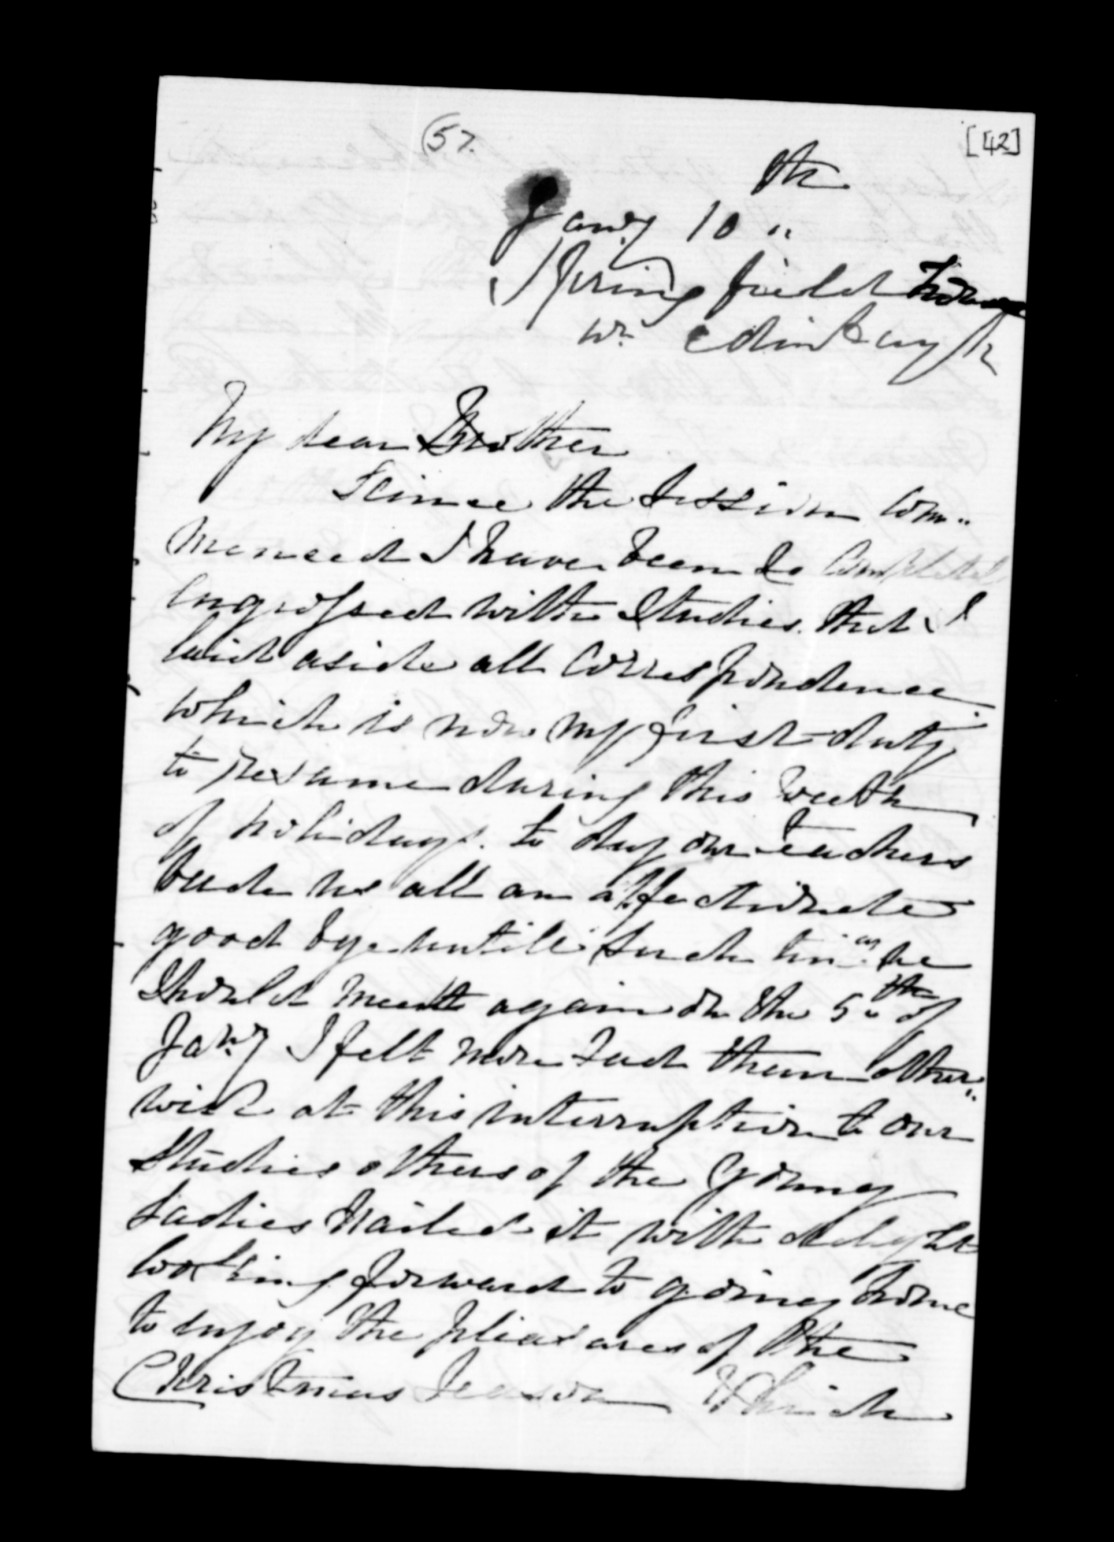 (57.
[42]
th
Jany 10 "
Springfield House
nr. Edinburgh
My dear Brother
Scince the Session com=
menced I have been so completely
engrossed with Studies that I
laid aside all correspondence
which is now my first duty
to resume during this week
of holidays. to day our teachers
bade us all an affectionate
good bye untill such time as we
should meett again on the 5th of
Jany I felt more sad than other=
wise at this interruption to our
Studies others of the young
Ladies hailed it with delight
looking forward to going home
to enjoy the pleasures of the
Christmas Season Which